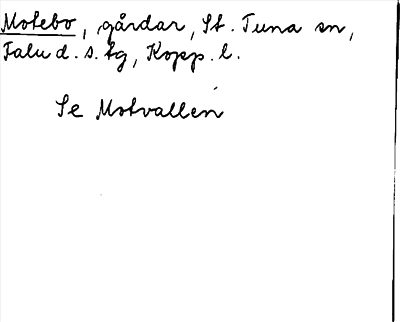 Motebo, gårdar, St. Tuna sn,
Falu d. s. tg, Kopp. l.
Se Motvallen